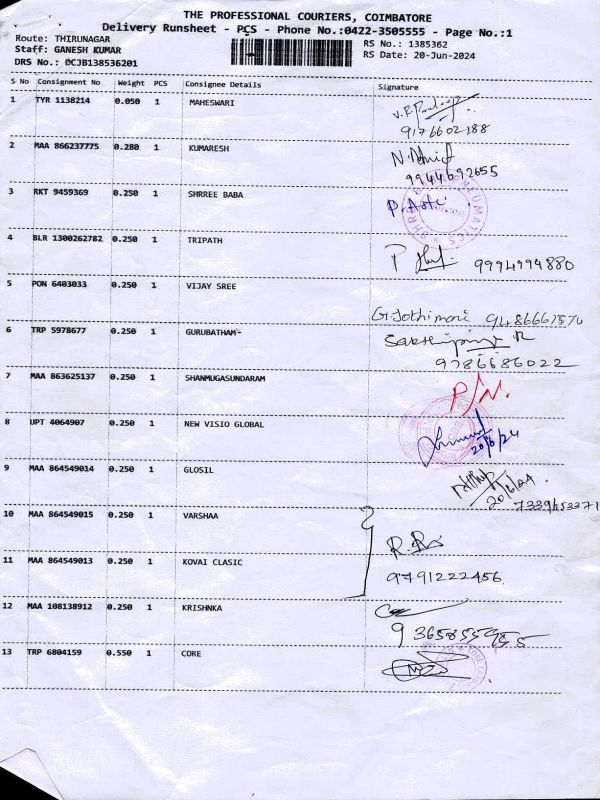 THE PROFESSIONAL COURIERS, COIMBATORE
Delivery Runsheet - PCS - Phone No.:0422-3505555 - Page No.:1
Route: THIRUNAGAR
Staff: GANESH KUMAR
DRS No.: DCJB138536201
RS No.: 1385362
RS Date: 20-Jun-2024
S No Consignment No Weight PCS Consignee Details Signature
1 TYR 1138214 0.050 1 MAHESWARI
9176602188
2 MAA 866237775 0.280 1 KUMARESH
9944692655
3 RKT 9459369 0.250 1 SHRREE BABA
4 BLR 1300262782 0.250 1 TRIPATH
9994994880
5 PON 6403033 0.250 1 VIJAY SREE
G. Jothimani
6 TRP 5978677 0.250 1 GURUBATHAM
9786686022
7 MAA 863625137 0.250 1 SHANMUGASUNDARAM
8 UPT 4064907 0.250 1 NEW VISIO GLOBAL
20/6/24
9 MAA 864549014 0.250 1 GLOSIL
20/6/24
7339653371
10 MAA 864549015 0.250 1 VARSHAA
11 MAA 864549013 0.250 1 KOVAI CLASIC
9791222456
12 MAA 108138912 0.250 1 KRISHNKA
13 TRP 6804159 0.550 1 CORE